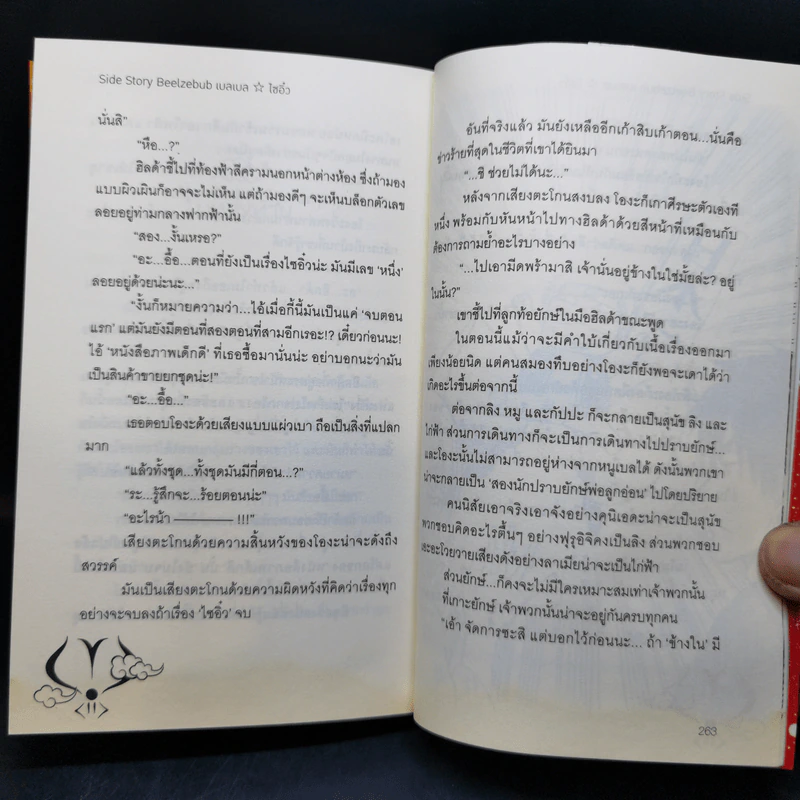 Side Story Beelzebub เบลเบล ☆ ไซอิ๋ว
นั่นสิ"
"หือ...?"
ฮิลด้าชี้ไปที่ท้องฟ้าสีครามนอกหน้าต่างห้อง ซึ่งถ้ามอง
แบบผิวเผินก็อาจจะไม่เห็น แต่ถ้ามองดีๆ จะเห็นบล็อกตัวเลข
ลอยอยู่ท่ามกลางฟากฟ้านั้น
"สอง...งั้นเหรอ?"
"อะ...อื้อ...ตอนที่ยังเป็นเรื่องไซอิ๋วน่ะ มันมีเลข 'หนึ่ง'
ลอยอยู่ด้วยน่ะนะ..."
"งั้นก็หมายความว่า...ไอ้เมื่อกี้นี้มันเป็นแค่ 'จบตอน
แรก' แต่มันยังมีตอนที่สองตอนที่สามอีกเรอะ!? เดี๋ยวก่อนนะ!
ไอ้ 'หนังสือภาพเด็กดี' ที่เธอซื้อมานั่นน่ะ อย่าบอกนะว่ามัน
เป็นสินค้าขายยกชุดน่ะ!"
"อะ...อื้อ..."
เธอตอบโองะด้วยเสียงแบบแผ่วเบา ถือเป็นสิ่งที่แปลก
มาก
"แล้วทั้งชุด...ทั้งชุดมันมีกี่ตอน...?"
"ระ...รู้สึกจะ...ร้อยตอนน่ะ"
"อะไรน้า ———— !!!"
เสียงตะโกนด้วยความสิ้นหวังของโองะน่าจะดังถึง
สวรรค์
มันเป็นเสียงตะโกนด้วยความผิดหวังที่คิดว่าเรื่องทุก
อย่างจะจบลงถ้าเรื่อง 'ไซอิ๋ว' จบ
อันที่จริงแล้ว มันยังเหลืออีกเก้าสิบเก้าตอน...นั่นคือ
ข่าวร้ายที่สุดในชีวิตที่เขาได้ยินมา
"...ชิ ช่วยไม่ได้นะ..."
หลังจากเสียงตะโกนสงบลง โองะก็เกาศีรษะตัวเองที
หนึ่ง พร้อมกับหันหน้าไปทางฮิลด้าด้วยสีหน้าที่เหมือนกับ
ต้องการถามย้ำอะไรบางอย่าง
"...ไปเอามีดพร้ามาสิ เจ้านั่นอยู่ข้างในใช่มั้ยล่ะ? อยู่
ในนั้น?"
เขาชี้ไปที่ลูกท้อยักษ์ในมือฮิลด้าขณะพูด
ในตอนนี้แม้ว่าจะมีคำใบ้เกี่ยวกับเนื้อเรื่องออกมา
เพียงน้อยนิด แต่คนสมองทึบอย่างโองะก็ยังพอจะเดาได้ว่า
เกิดอะไรขึ้นต่อจากนี้
ต่อจากลิง หมู และกัปปะ ก็จะกลายเป็นสุนัข ลิง และ
ไก่ฟ้า ส่วนการเดินทางก็จะเป็นการเดินทางไปปราบยักษ์...
และโองะนั้นไม่สามารถอยู่ห่างจากหนูเบลได้ ดังนั้นพวกเขา
น่าจะกลายเป็น 'สองนักปราบยักษ์พ่อลูกอ่อน' ไปโดยปริยาย
คนนิสัยเอาจริงเอาจังอย่างคุนิเอดะน่าจะเป็นสุนัข
พวกชอบคิดอะไรตื้นๆ อย่างฟุรุอิจิคงเป็นลิง ส่วนพวกชอบ
เอะอะโวยวายเสียงดังอย่างลาเมียน่าจะเป็นไก่ฟ้า
ส่วนยักษ์...ก็คงจะไม่มีใครเหมาะสมเท่าเจ้าพวกนั้น
ที่เกาะยักษ์ เจ้าพวกนั้นน่าจะอยู่กันครบทุกคน
"เอ้า จัดการซะสิ แต่บอกไว้ก่อนนะ... ถ้า 'ข้างใน' มี
263